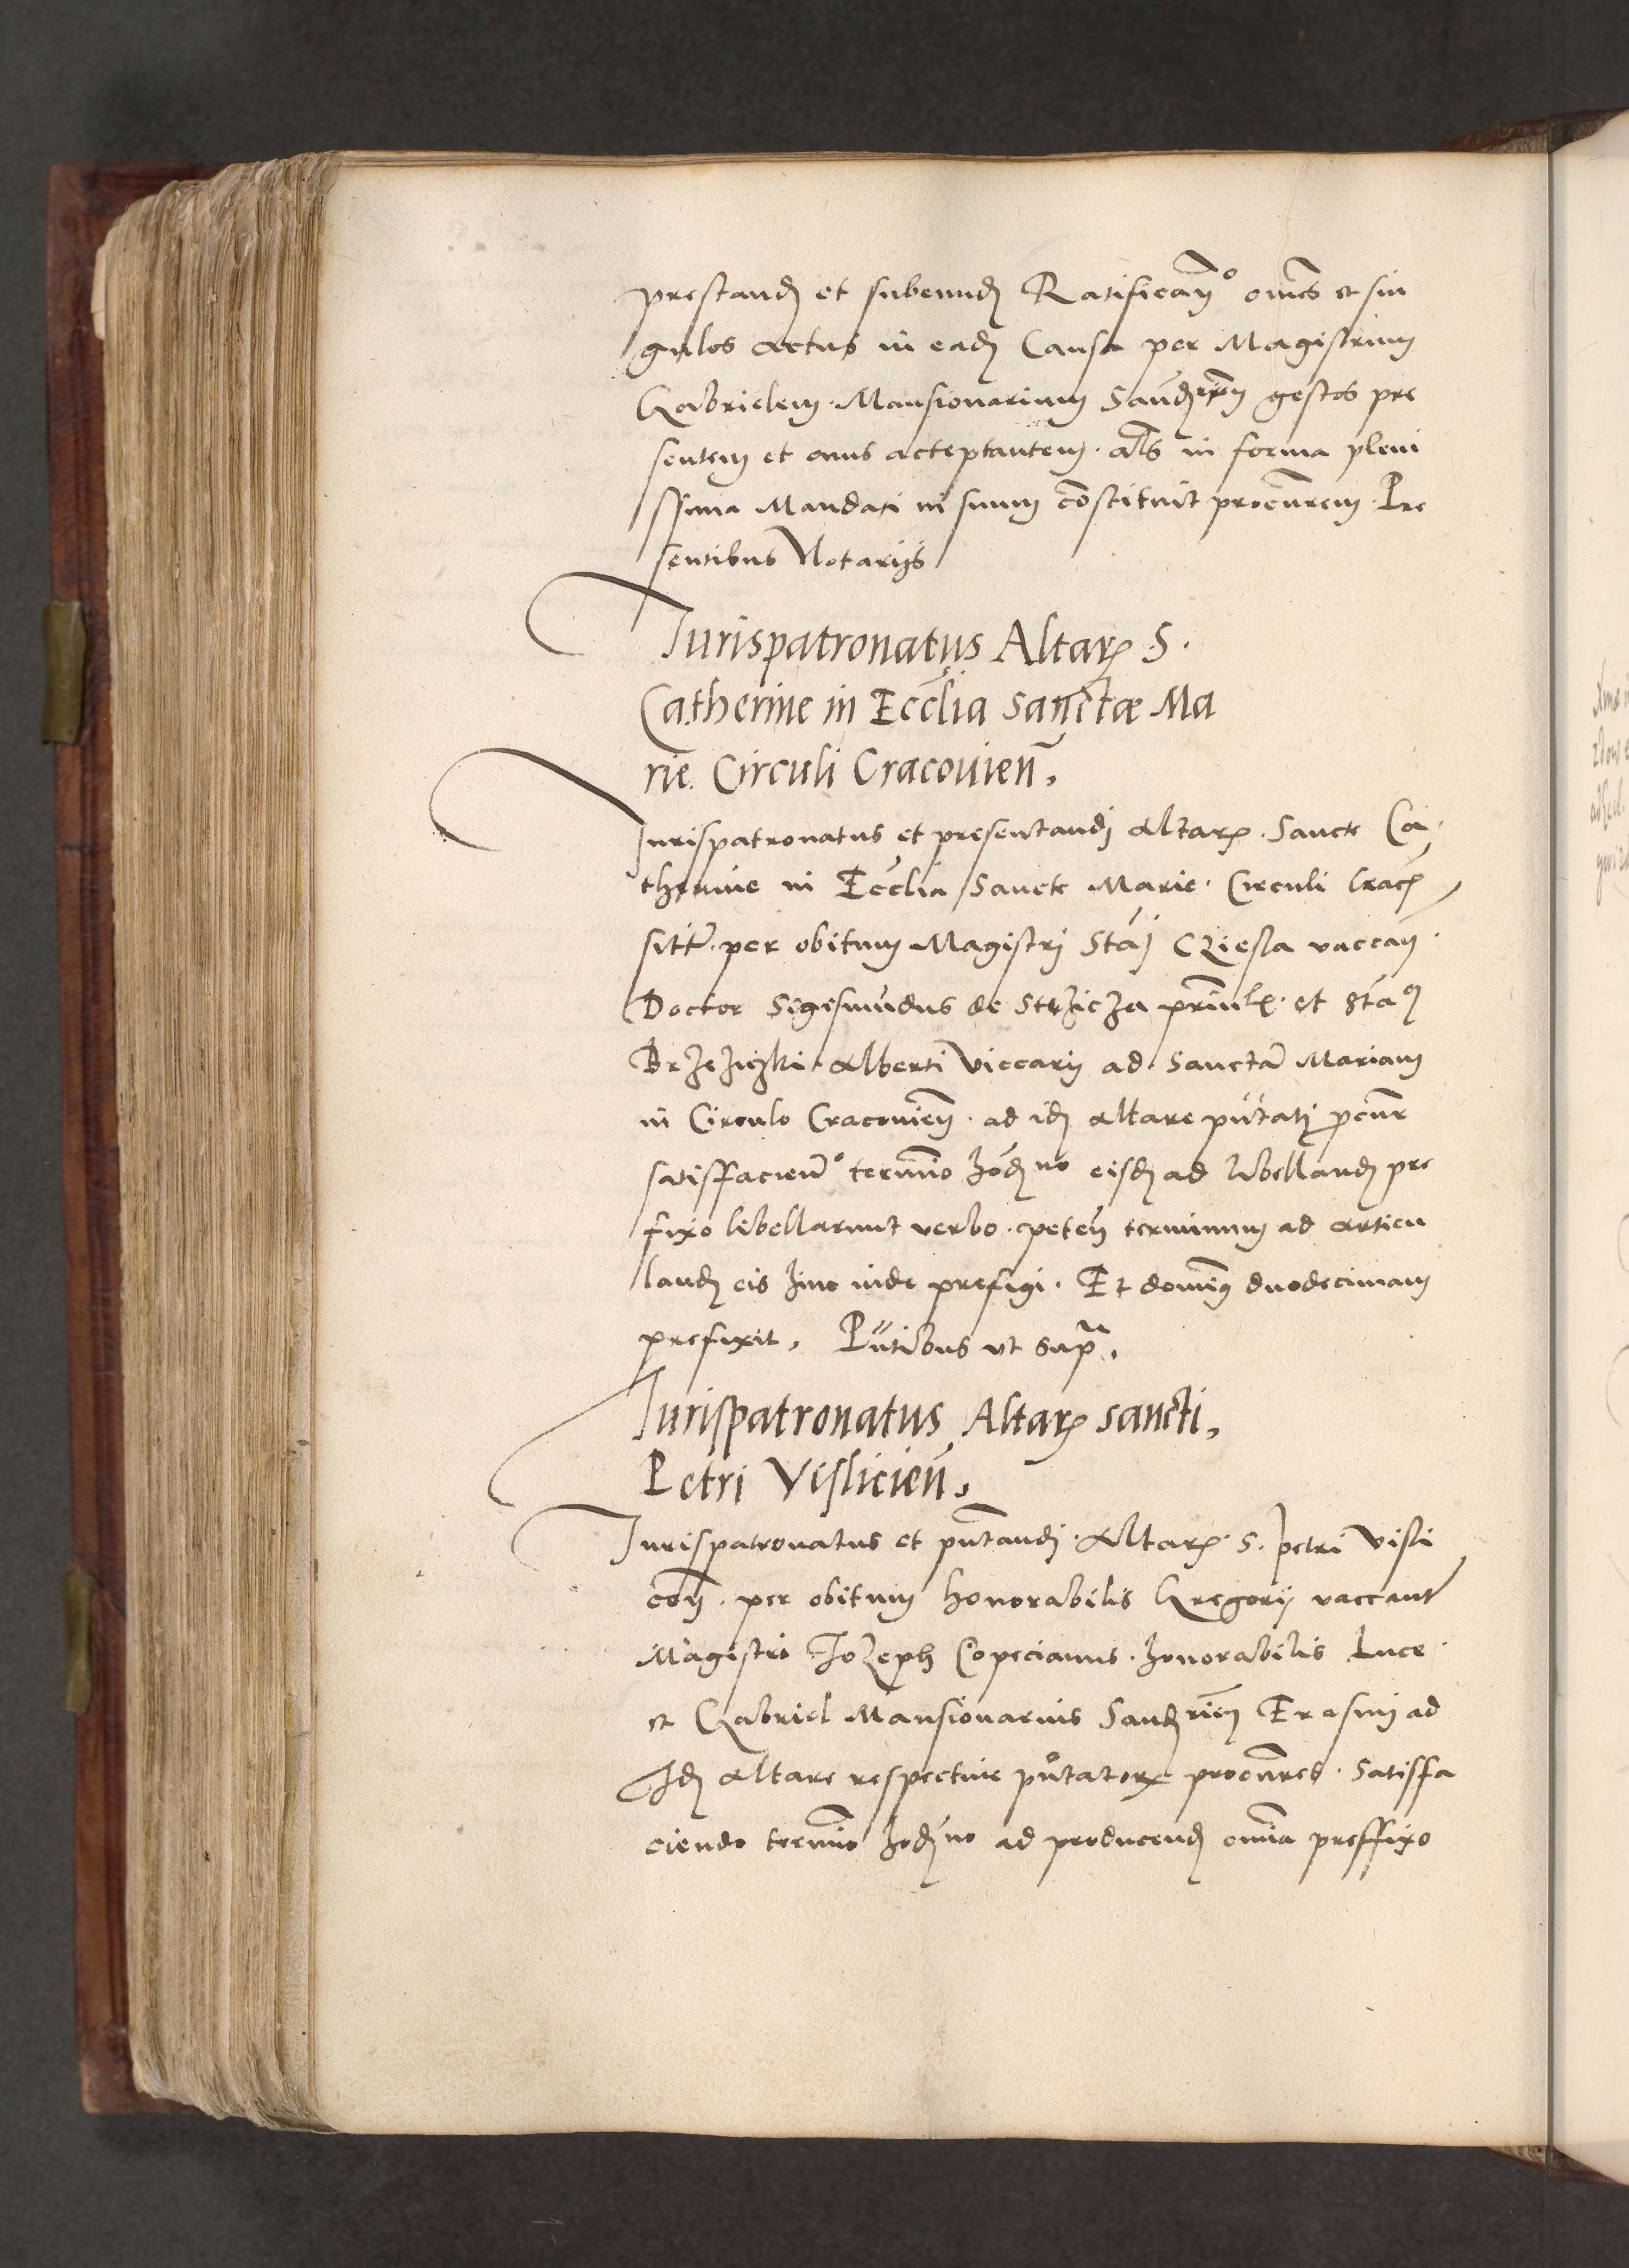 prestand et subeund Ratifican͂º om̃es et sin
gulos actus in ead Causa per Magistrum
Gabrielem Mansionarium Sand gestos pre
sentem et onus acceptantem. als in forma pleni
ssima Mandati in suum co͂stituit procur͂em. Pre
sentibus Notarijs
Jurispatronatus Altar S.
Catherine in Eccl͂ia Sanctæ Ma
rie Circuli Cracouien͂,
Jurispatronatus et presentandi altar. Sancte Ca
therine in Eccl͂ia Sancte Marie Circuli Crac
sit͂i. per obitum Magistri Sta͂j Cziesla vaccan͂
Doctor Sigismu͂dus de Strzicza et Sta͂
Brzeziczki Alberti Viccarij ad Sancta͂ Mariam
in Circulo Cracouien͂. ad id altare pn͂tati
satisfacien͂º termi͂o hod͂no eisd ad libelland pre
fixo libellarunt verbo. peten͂ terminum ad articu
land eis hinc inde prefigi. Et domin9 duodecimam
prefixit, Pn͂tibus vt supra.
Jurispatronatus Altar sancti,
Petri Vislicien͂,
Jurispatronatus et pn͂tandi Altar S. petri Visli
cen͂. per obitum honorabilis Gregorij vaccant͂
Magistri Jozeph Copecianus. honorabilis Luce
et Gabriel Mansionarius Sand Erasmi ad
Id altare respectiue pn͂tator procur͂es. Satisfa
ciendo termi͂o hod͂no ad producend om͂ia preffixo